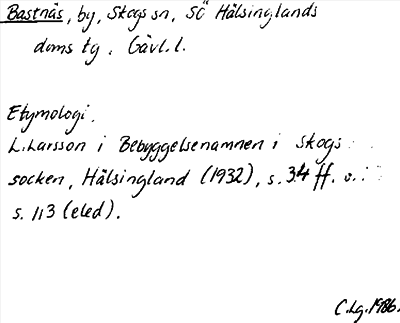 Bastnäs, by, Skogs sn, SÖ Hälsinglands
doms tg, Gävl. l.
Etymologi.
L. Larsson i Bebyggelsenamnen i Skogs
socken, Hälsingland (1932), s. 34 ff. o.
s. 113 (eled).
C. Lg. 1986.